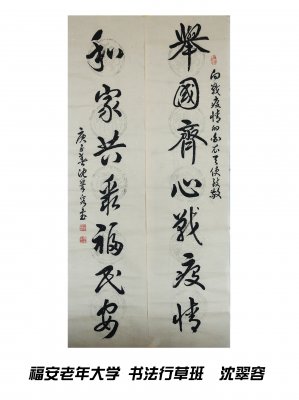 向戰疫情的白衣天使致敬
舉國齊心戰疫情
和家共聚福民安
庚子春沈翠容書
福安老年大学 书法行草班 沈翠容